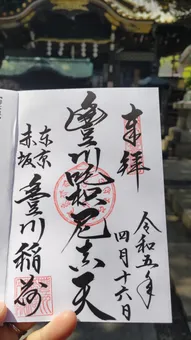 奉拝
令和五年
四月十六日
豊川吒枳尼真天
東京
赤坂
豊川稲荷